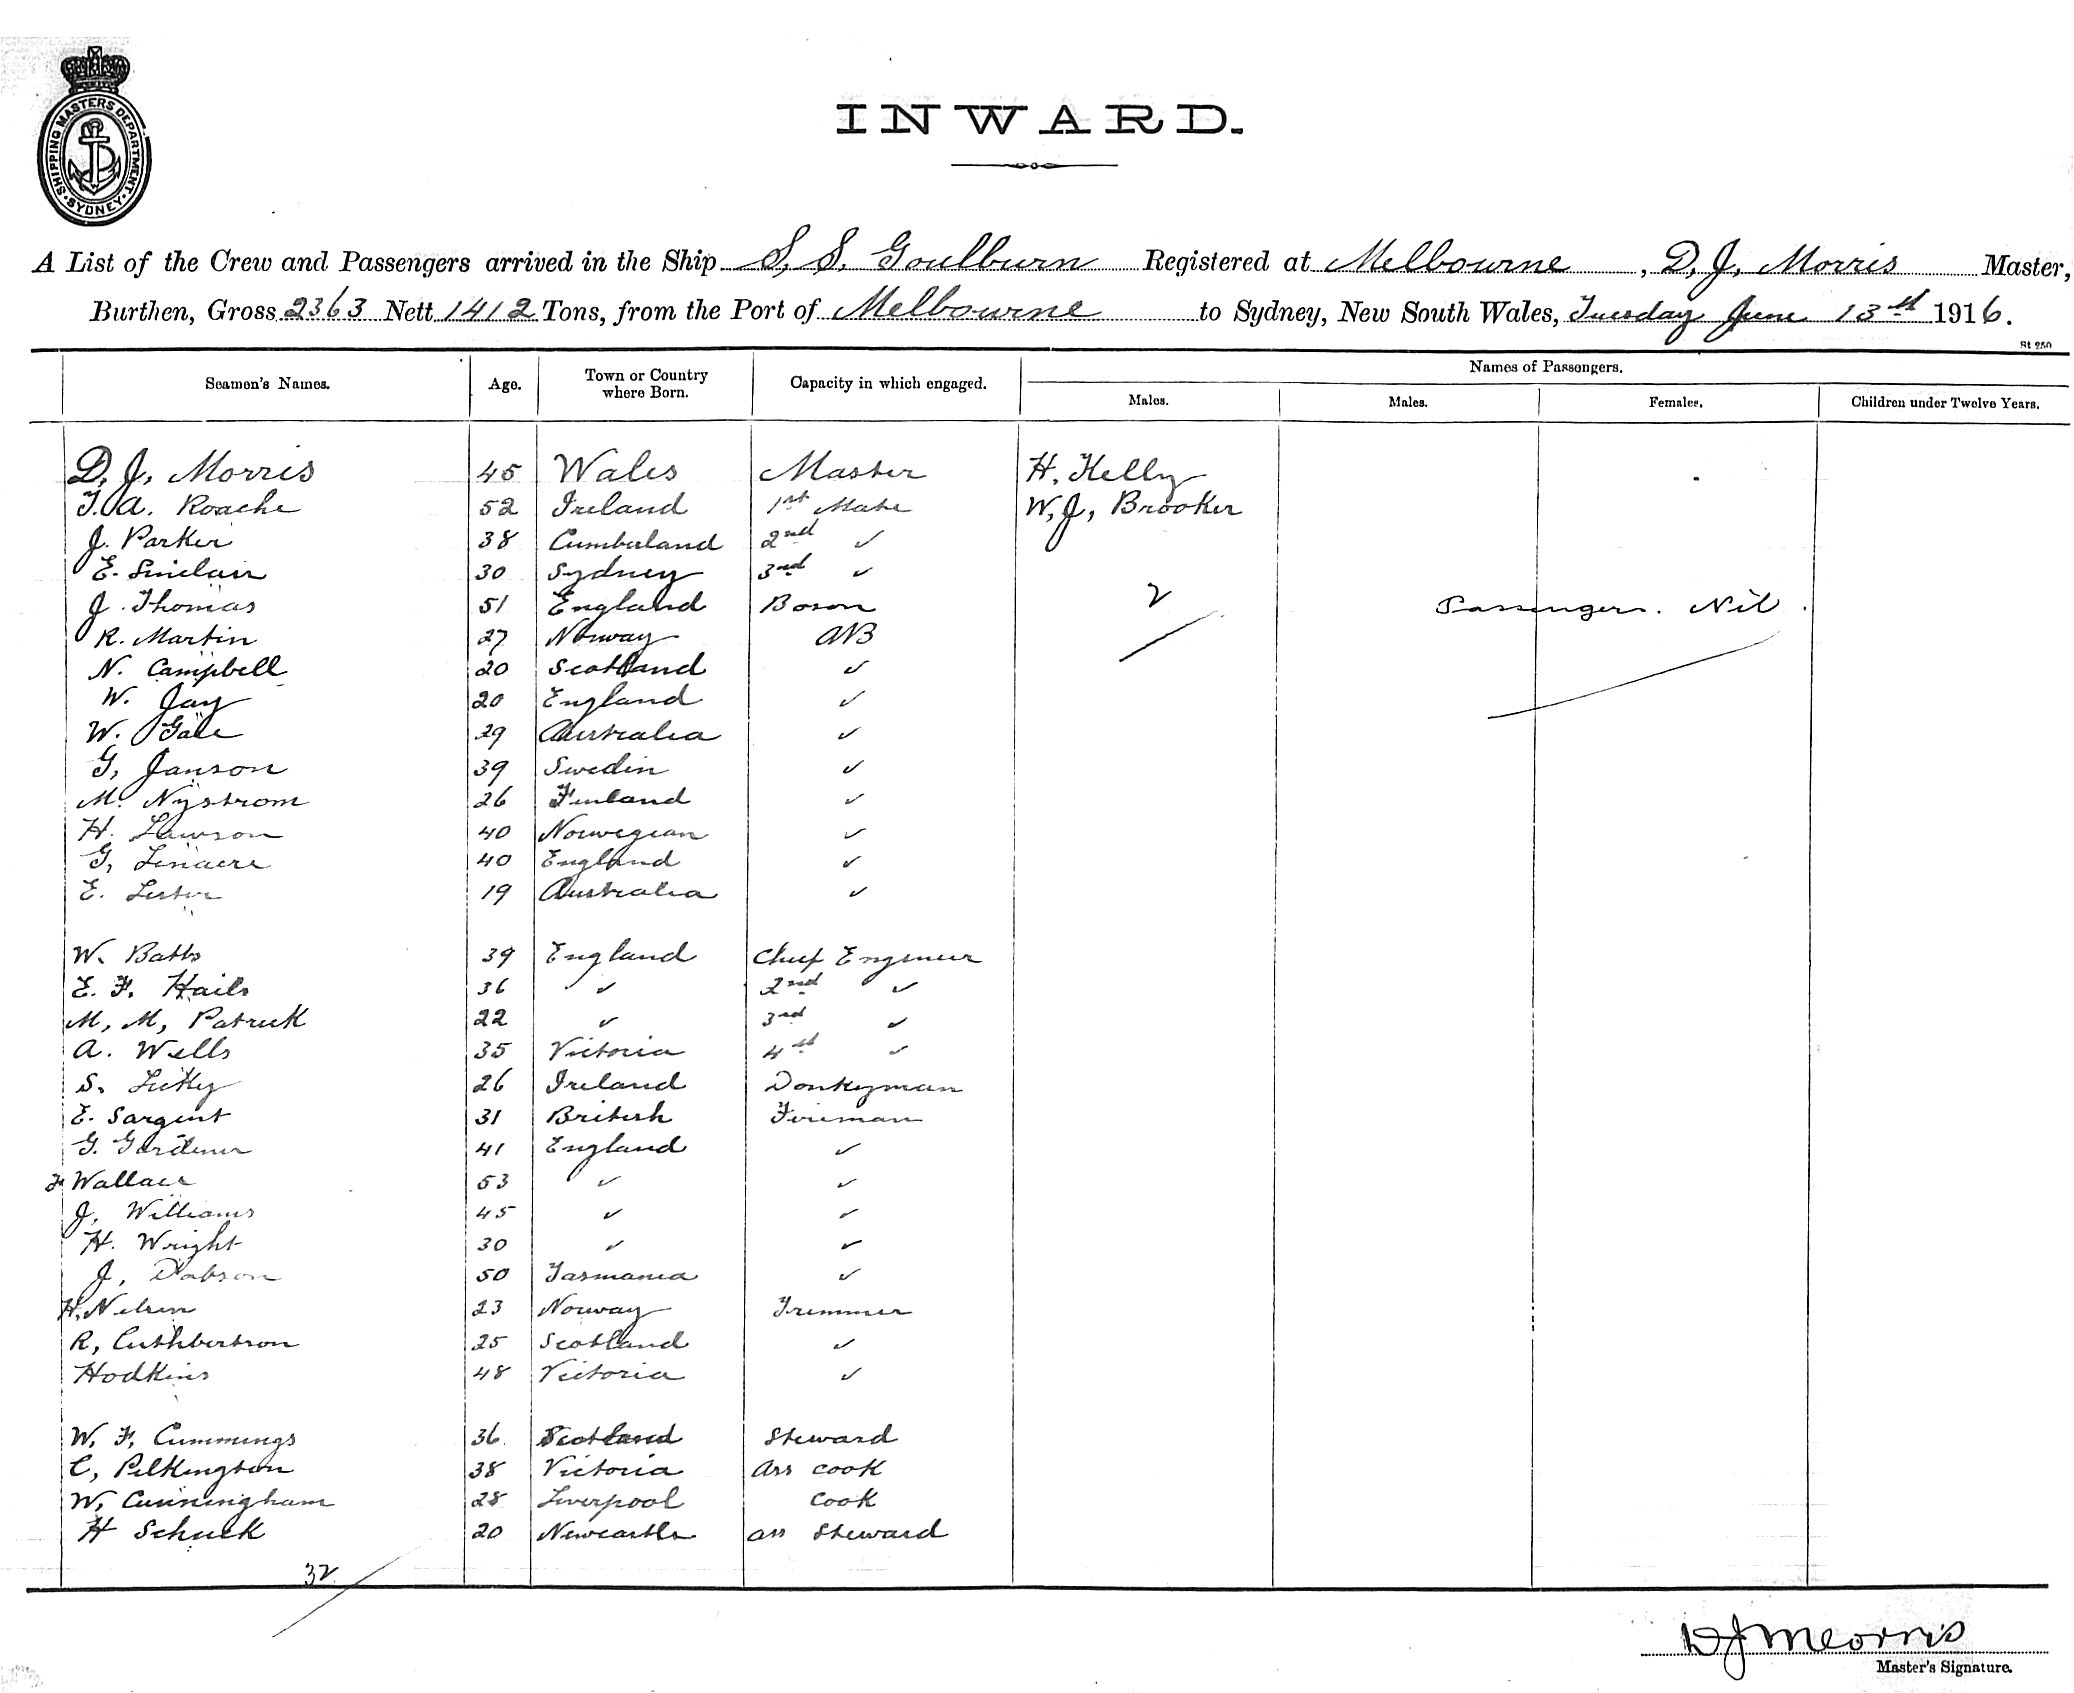 SHIPPING MASTERS DEPARTMENT. SYDNEY.
INWARD.
A List of the Crew and Passengers arrived in the Ship S. S. Goulburn Registered at Melbourne, D. J. Morris Master,
Burthen, Gross 2363 Nett 1412 Tons, from the Port of Melbourne to Sydney, New South Wales, Tuesday June 13th 1916.
St 250
Seamen's Names. Age. Town or Country where Born. Capacity in which engaged. Names of Passengers.
Males. Males. Females. Children under Twelve Years.
D. J. Morris 45 Wales Master H. Kelly
T. A. Roache 52 Ireland 1st Mate W. J. Brooker
J. Parker 38 Cumberland 2nd ✓
E. Sinclair 30 Sydney 3rd ✓
J. Thomas 51 England Boson 2 Passengers. Nil.
R. Martin 27 Norway AB
N. Campbell 20 Scotland ✓
W. Jay 20 England ✓
W. Gale 29 Australia ✓
G. Janson 39 Sweden ✓
M. Nystrom 26 Finland ✓
H. Lawson 40 Norwegian ✓
G. Linacre 40 England ✓
E. Lester 19 Australia ✓
W. Batts 39 England Chief Engineer
E. F. Hails 36 ✓ 2nd ✓
M. M. Patrick 22 ✓ 3rd ✓
A. Wells 35 Victoria 4th ✓
S. 26 Ireland Donkyman
E. Sargent 31 British Fireman
G. Gardener 41 England ✓
F. Wallace 53 ✓ ✓
J. Williams 45 ✓ ✓
H. Wright 30 ✓ ✓
J. Dobson 50 Tasmania ✓
H. Nelsen 23 Norway Trimmer
R. Cuthbertson 25 Scotland ✓
Hodkins 48 Victoria ✓
W. F. Cummings 36 Scotland Steward
C. Pilkington 38 Victoria Ass Cook
W. Cunningham 28 Liverpool Cook
H Schuck 20 Newcastle Ass Steward
32
D J Morris
Master's Signature.